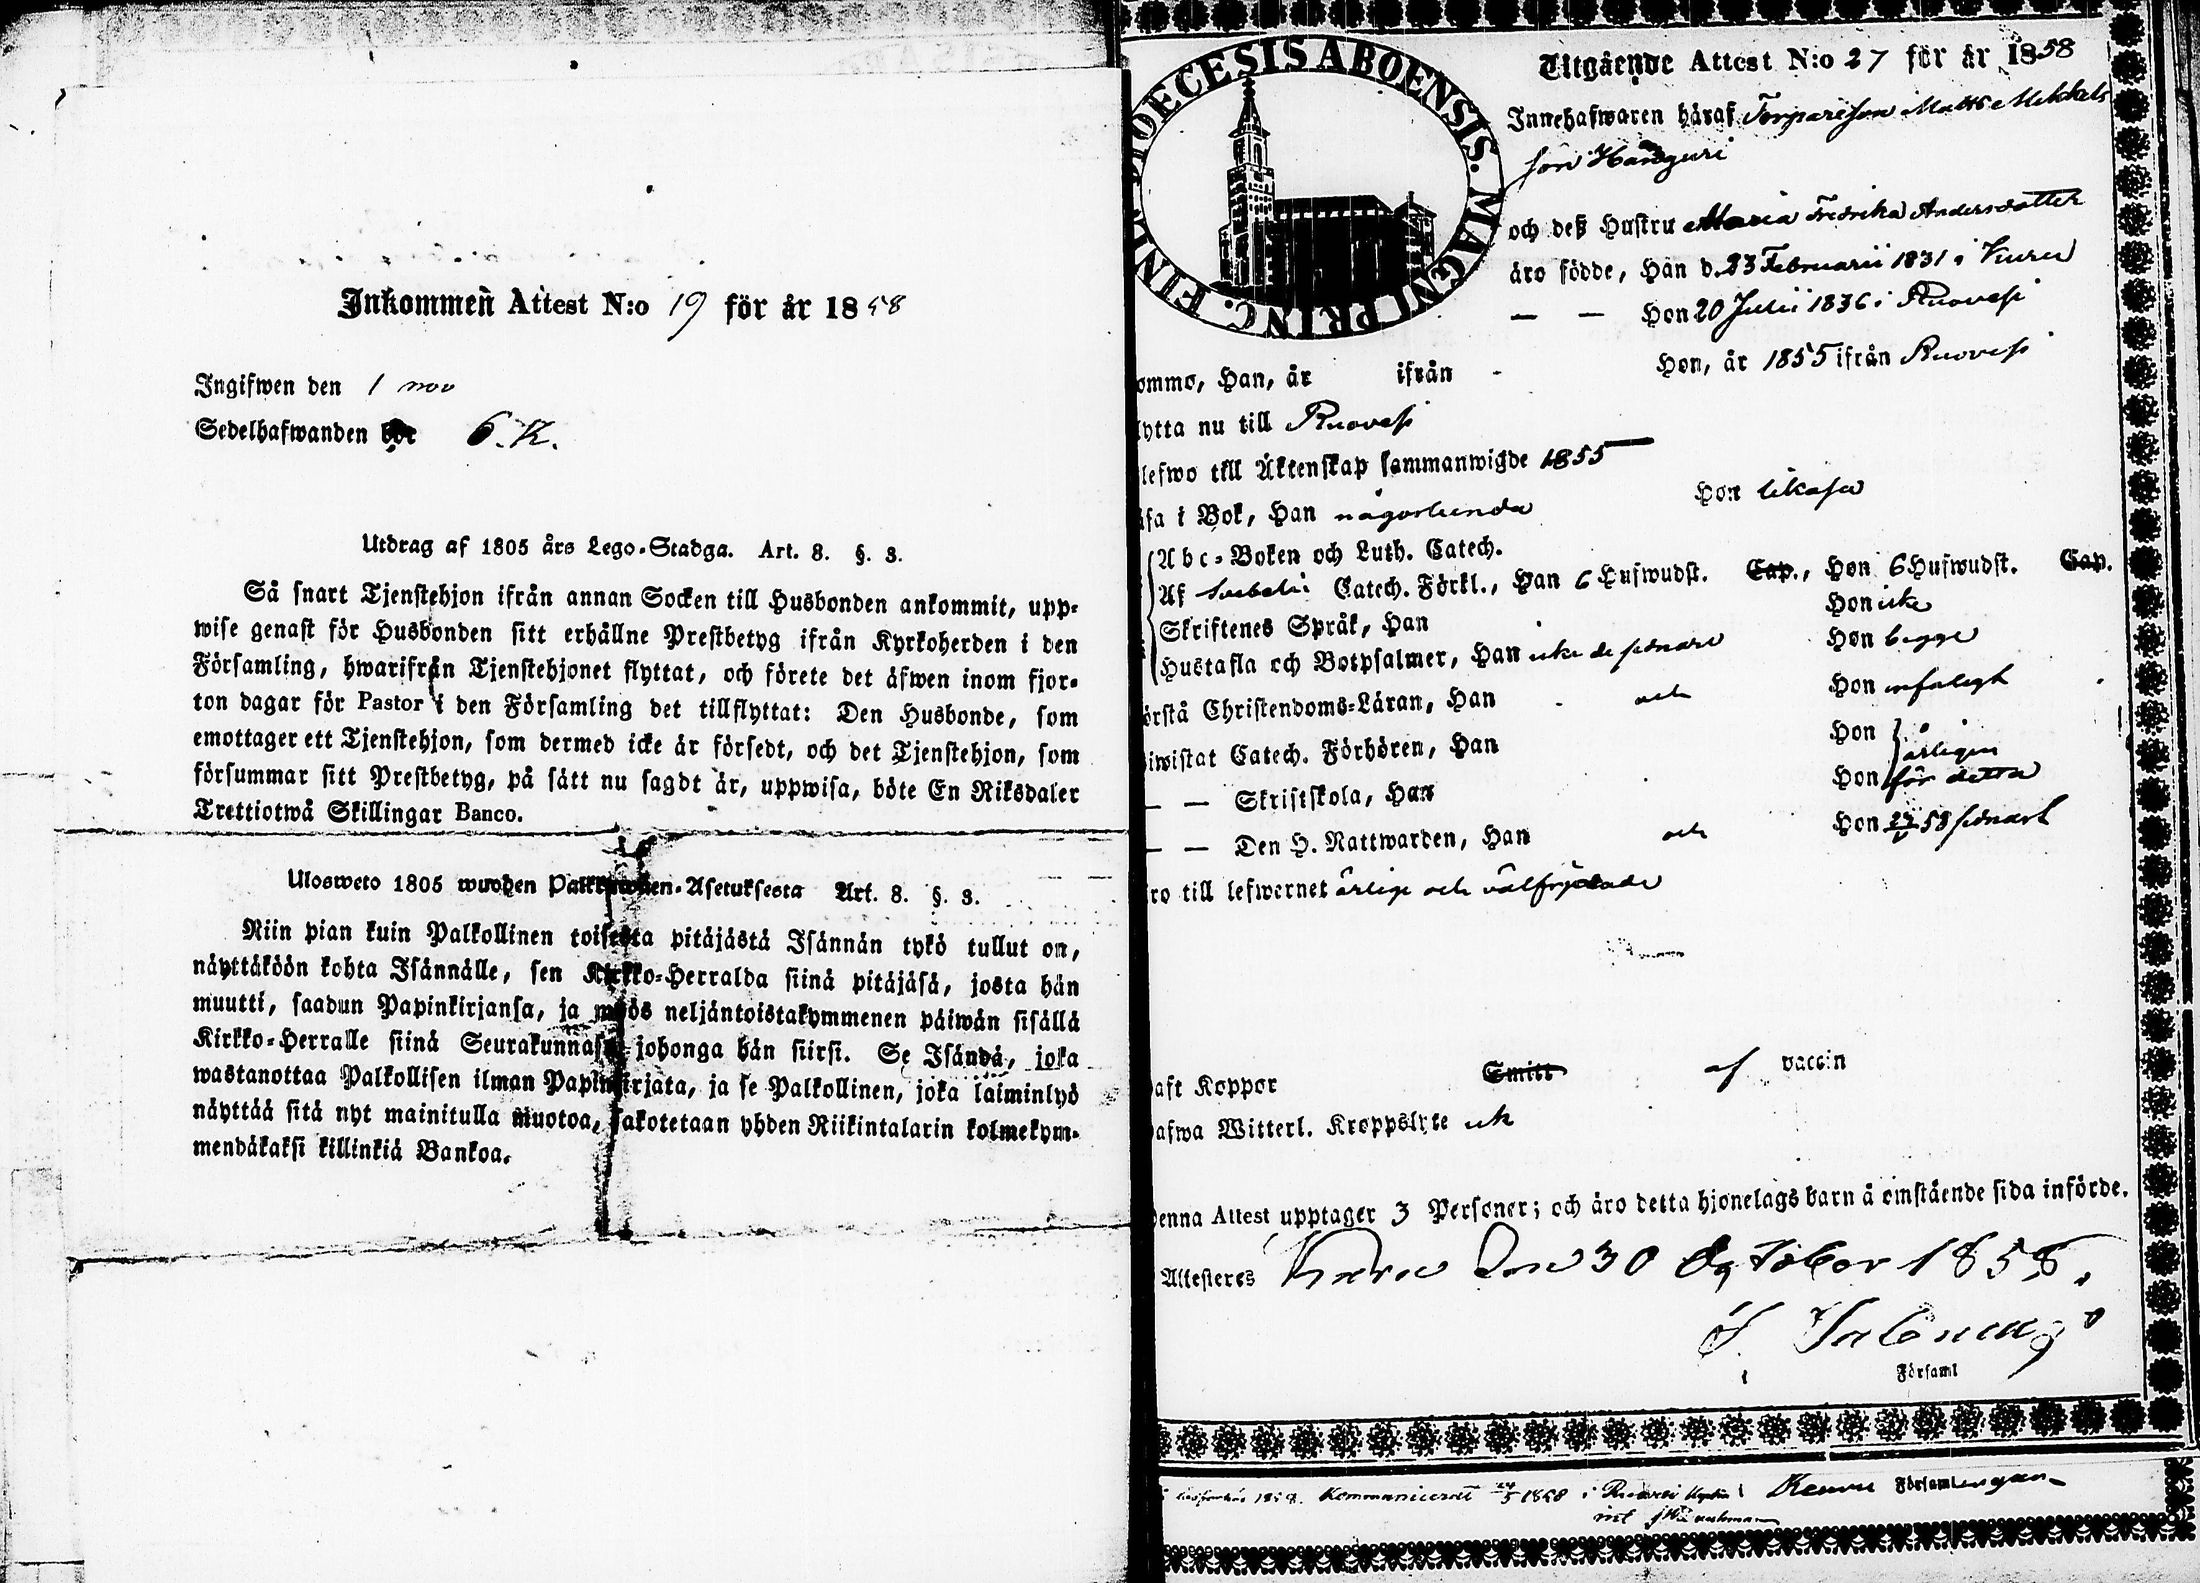 Inkommen Attest N:o 19 för år 1858
Ingifwen den 1 nov
Sedelhafwanden bör 6. K.
Utdrag af 1805 års Lego-Stadga. Art. 8. §. 3.
Så snart Tjenstehjon ifrån annan Socken till Husbonden ankommit, upp-
wise genast för Husbonden sitt erhållne Prestbetyg ifrån Kyrkoherden i den
Församling, hwarifrån Tjenstehjonet flyttat, och förete det äfwen inom fjor-
ton dagar för Pastor i den Församling det tillflyttat: Den Husbonde, som
emottager ett Tjenstehjon, som dermed icke är försedt, och det Tjenstehjon, som
försummar sitt Prestbetyg, på sätt nu sagdt är, uppwisa, böte En Riksdaler
Trettiotwå Skillingar Banco.
Ulosweto 1805 wuoden Palkkawäen-Asetuksesta Art. 8. §. 3.
Niin pian kuin Palkollinen toisesta pitäjästä Isännän tykö tullut on,
näyttäköön kohta Isännälle, sen Kirkko-Herralda siinä pitäjäsä, josta hän
muutti, saadun Papinkirjansa, ja myös neljäntoistakymmenen päiwän sisällä
Kirkko-Herralle siinä Seurakunnasa johonga hän siirsi. Se Isändä, joka
wastanottaa Palkollisen ilman Papinkirjata, ja se Palkollinen, joka laiminlyö
näyttää sitä nyt mainitulla muotoa, sakotetaan yhden Riikintalarin kolmekym-
mendäkaksi killinkiä Bankoa.
DIOECESIS ABOENSIS. MAGNI PRINC. FINL.
Utgående Attest N:o 27 för år 1858
Innehafwaren häraf Torpareson Matts Mikkels
son Hanguri
och deß Hustru Maria Fredrika Andersdotter
äro födde, Han d. 23 Februarii 1831 i Kuru
— — Hon 20 Julii 1836 i Ruovesi
ommo, Han, år ifrån - Hon, år 1855 ifrån Ruovesi
lytta nu till Ruovesi
lefwo till Äktenskap sammanwigde 1855
äsa i Bok, Han någorlunda Hon likaså
Abc-Boken och Luth. Catech.
Af Svebelii Catech. Förkl., Han 6 Hufwudst. Cap., Hon 6 Hufwudst. Cap.
Skriftenes Språk, Han Hon icke
Hustafla och Botpsalmer, Han icke de senare Hon begge
örstå Christendoms-Läran, Han och Hon enfaligt
iwistat Catech. Förhören, Han Hon årligen
— — Skriftskola, Han Hon för detta
— — Den H. Nattwarden, Han och Hon 24/5 58 senast
ro till lefwernet ärlige och välfrejdade
aft Koppor Smitt af vaccin
afwa Witterl. Kroppslyte ick
Denna Attest upptager 3 Personer; och äro detta hjonelags barn å omstående sida införde.
Attesteres Kuru den 30 October 1858.
i Församl
1858. Kommunicerat 24/5 1858 i Ruovesi i Kuru Församlingen